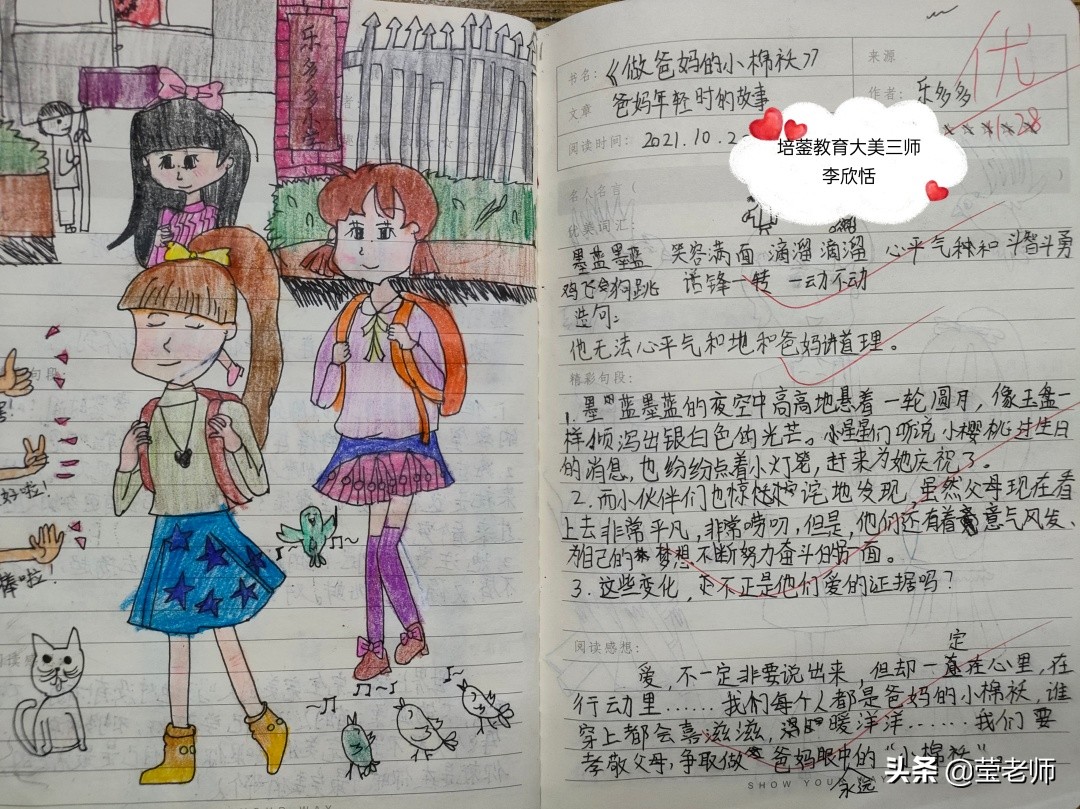 乐多多小学
好啦!
棒啦!
书名:《做爸妈的小棉袄》
来源
优
文章 爸妈年轻时的故事
作者: 乐多多
阅读时间: 2021.10.2
11.28
培蓥教育大美三师
李欣恬
名人名言
优美词汇:
墨蓝墨蓝 笑容满面 滴溜滴溜 心平气和 斗智斗勇
鸡飞狗跳 话锋一转 一动不动
造句:
他无法心平气和地和爸妈讲道理。
精彩句段:
1. 墨蓝墨蓝的夜空中高高地悬着一轮圆月,像玉盘一
样倾泻出银白色的光芒。小星星们听说小樱桃过生日
的消息,也纷纷点着小灯笼,赶来为她庆祝了。
2. 而小伙伴们也惊诧地发现,虽然父母现在看
上去非常平凡,非常唠叨,但是,他们还有着意气风发、
为自己的梦想不断努力奋斗的方面。
3. 这些变化,不正是他们爱的证据吗?
阅读感想:
定
爱,不一定非要说出来,但却一直在心里,在
行动里……我们每个人都是爸妈的小棉袄,谁
穿上都会喜滋滋,暖洋洋……我们要
孝敬父母,争取做爸妈眼中的“小棉袄”
永远
SHOW YOUR
头条 @莹老师